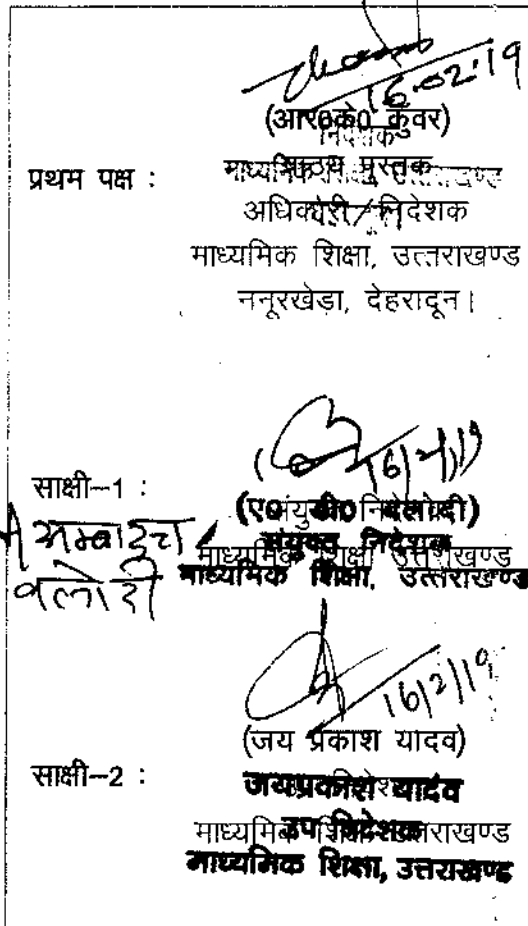 16.02.19
(आर0के0 कुंवर)
निदेशक
प्रथम पक्ष : पाठ्य पुस्तक
माध्यमिक शिक्षा, उत्तराखण्ड
अधिकारी/निदेशक
माध्यमिक शिक्षा, उत्तराखण्ड
ननूरखेड़ा, देहरादून।
16/2/19
साक्षी–1 :
(ए0 बलोदी)
संयुक्त निदेशक
संयुक्त निदेशक
माध्यमिक शिक्षा उत्तराखण्ड
माध्यमिक शिक्षा, उत्तराखण्ड
बलोदी
16/2/19
(जय प्रकाश यादव)
साक्षी–2 : जयप्रकाश यादव
उप निदेशक
माध्यमिक शिक्षा, उत्तराखण्ड
माध्यमिक शिक्षा, उत्तराखण्ड